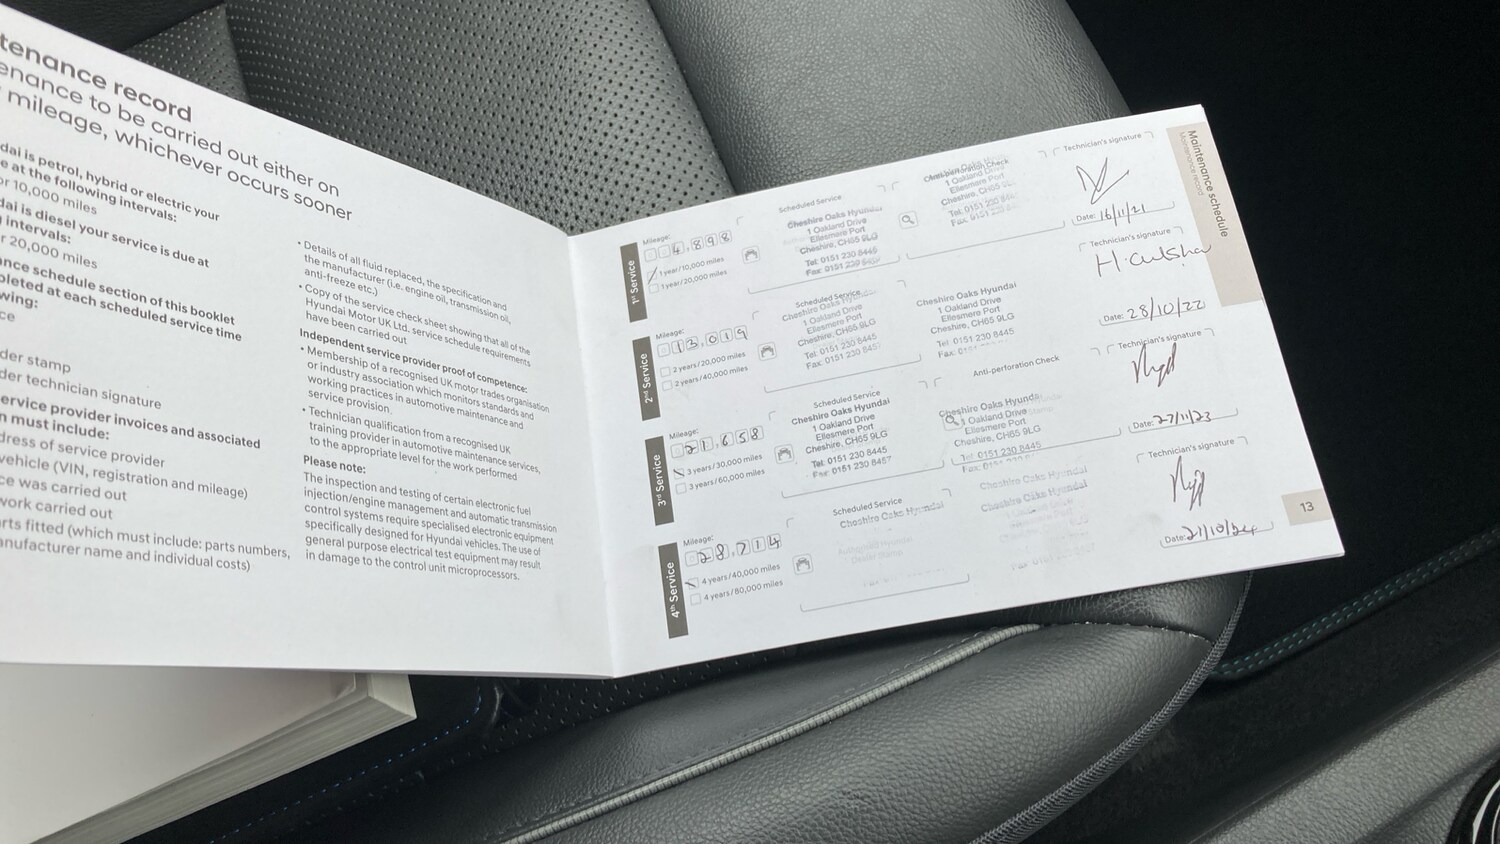 tenance record
enance to be carried out either on
mileage, whichever occurs sooner
dai is petrol, hybrid or electric your
e at the following intervals:
or 10,000 miles
dai is diesel your service is due at
intervals:
r 20,000 miles
nce schedule section of this booklet
pleted at each scheduled service time
wing:
ce
der stamp
der technician signature
ervice provider invoices and associated
n must include:
dress of service provider
vehicle (VIN, registration and mileage)
ce was carried out
work carried out
arts fitted (which must include: parts numbers,
anufacturer name and individual costs)
• Details of all fluid replaced, the specification and
the manufacturer (i.e. engine oil, transmission oil,
anti-freeze etc.)
• Copy of the service check sheet showing that all of the
Hyundai Motor UK Ltd. service schedule requirements
have been carried out
Independent service provider proof of competence:
• Membership of a recognised UK motor trades organisation
or industry association which monitors standards and
working practices in automotive maintenance and
service provision
• Technician qualification from a recognised UK
training provider in automotive maintenance services,
to the appropriate level for the work performed
Please note:
The inspection and testing of certain electronic fuel
injection/engine management and automatic transmission
control systems require specialised electronic equipment
specifically designed for Hyundai vehicles. The use of
general purpose electrical test equipment may result
in damage to the control unit microprocessors.
Maintenance schedule
Maintenance record
1st Service
Mileage:
04,898
1 year/10,000 miles
1 year/20,000 miles
Scheduled Service
Cheshire Oaks Hyundai
1 Oakland Drive
Ellesmere Port
Cheshire, CH65 9LG
Tel: 0151 230 8445
Fax: 0151 230 8457
Anti-perforation Check
Cheshire Oaks
1 Oakland Drive
Ellesmere Port
Cheshire, CH65
Tel: 0151 230
Fax: 0151
Technician's signature
Date: 16/11/21
2nd Service
Mileage:
13,019
2 years/20,000 miles
2 years/40,000 miles
Scheduled Service
Cheshire Oaks
1 Oakland Drive
Ellesmere Port
Cheshire, CH65 9LG
Tel: 0151 230 8445
Fax: 0151 230 8457
Cheshire Oaks Hyundai
1 Oakland Drive
Ellesmere Port
Cheshire, CH65 9LG
Tel: 0151 230 8445
Fax: 0151
Technician's signature
Date: 28/10/22
3rd Service
Mileage:
21,658
3 years/30,000 miles
3 years/60,000 miles
Scheduled Service
Cheshire Oaks Hyundai
1 Oakland Drive
Ellesmere Port
Cheshire, CH65 9LG
Tel: 0151 230 8445
Fax: 0151 230 8457
Anti-perforation Check
Cheshire Oaks Hyundai
1 Oakland Drive
Ellesmere Port
Cheshire, CH65 9LG
Tel: 0151 230 8445
Fax: 0151
Technician's signature
Date: 27/11/23
4th Service
Mileage:
28,714
4 years/40,000 miles
4 years/80,000 miles
Scheduled Service
Cheshire Oaks Hyundai
Cheshire Oaks Hyundai
Cheshire Oaks Hyundai
Technician's signature
Date: 21/10/24
13